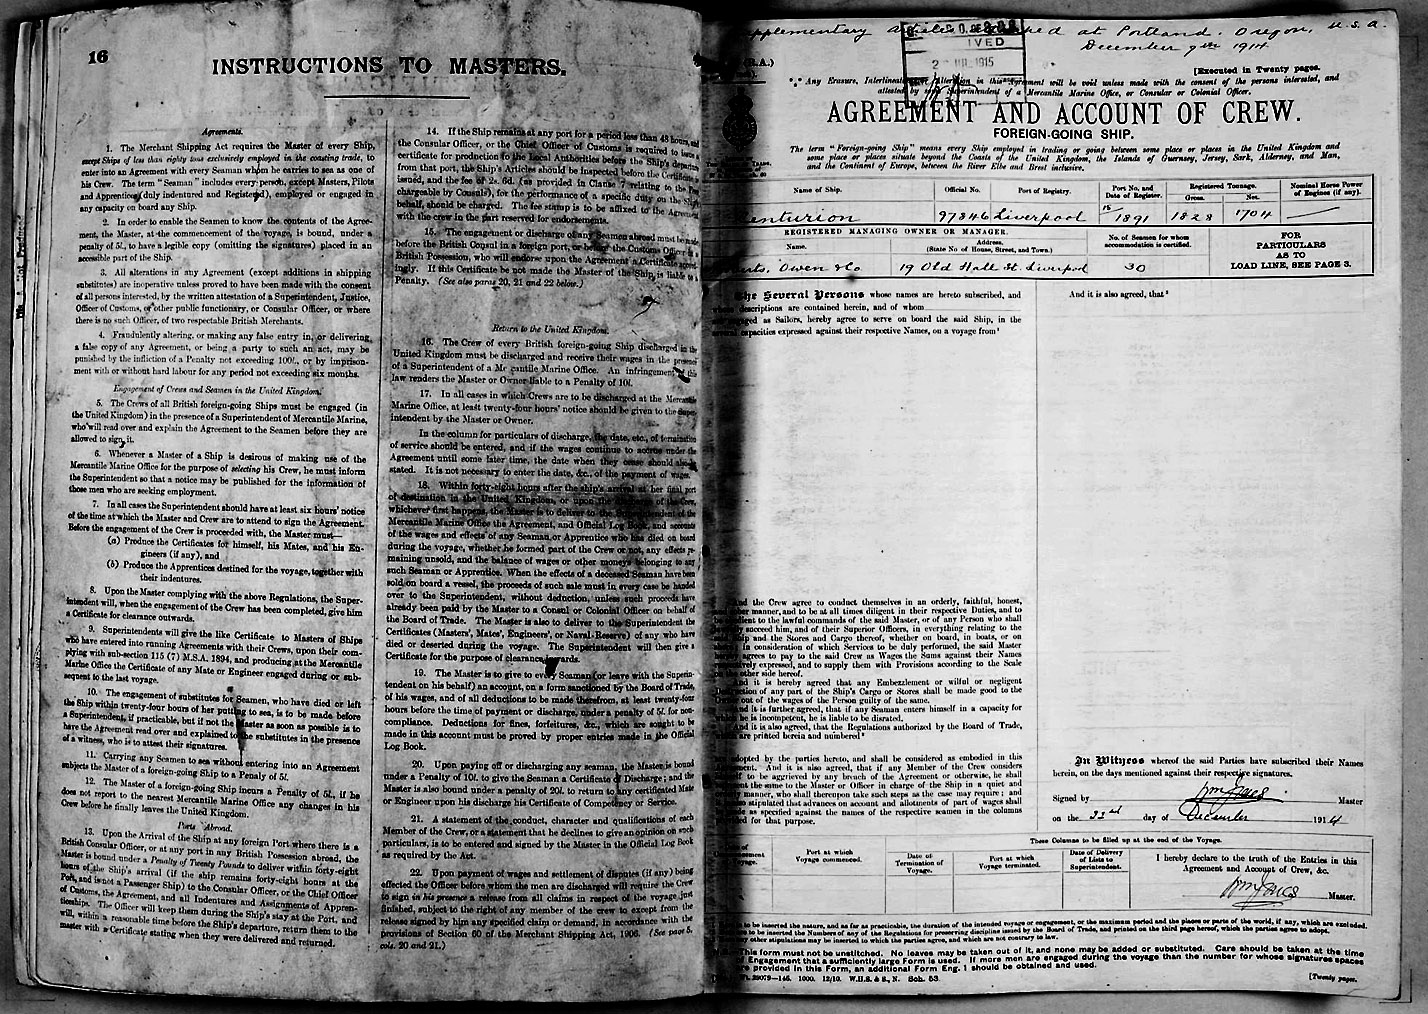 16
INSTRUCTIONS TO MASTERS.
Agreements.
1. The Merchant Shipping Act requires the Master of every Ship,
except Ships of less than eighty tons exclusively employed in the coasting trade, to
enter into an Agreement with every Seaman whom he carries to sea as one of
his Crew. The term "Seaman" includes every person, except Masters, Pilots
and Apprentices (duly indentured and Registered), employed or engaged in
any capacity on board any Ship.
2. In order to enable the Seamen to know the contents of the Agree-
ment, the Master, at the commencement of the voyage, is bound, under a
penalty of 5l., to have a legible copy (omitting the signatures) placed in an
accessible part of the Ship.
3. All alterations in any Agreement (except additions in shipping
substitutes) are inoperative unless proved to have been made with the consent
of all persons interested, by the written attestation of a Superintendent, Justice,
Officer of Customs, or other public functionary, or Consular Officer, or where
there is no such Officer, of two respectable British Merchants.
4. Fraudulently altering, or making any false entry in, or delivering,
a false copy of any Agreement, or being a party to such an act, may be
punished by the infliction of a Penalty not exceeding 100l., or by imprison-
ment with or without hard labour for any period not exceeding six months.
Engagement of Crews and Seamen in the United Kingdom.
5. The Crews of all British foreign-going Ships must be engaged (in
the United Kingdom) in the presence of a Superintendent of Mercantile Marine,
who will read over and explain the Agreement to the Seamen before they are
allowed to sign it.
6. Whenever a Master of a Ship is desirous of making use of the
Mercantile Marine Office for the purpose of selecting his Crew, he must inform
the Superintendent so that a notice may be published for the information of
those men who are seeking employment.
7. In all cases the Superintendent should have at least six hours' notice
of the time at which the Master and Crew are to attend to sign the Agreement.
Before the engagement of the Crew is proceeded with, the Master must—
(a) Produce the Certificates for himself, his Mates, and his En-
gineers (if any), and
(b) Produce the Apprentices destined for the voyage, together with
their indentures.
8. Upon the Master complying with the above Regulations, the Super-
intendent will, when the engagement of the Crew has been completed, give him
a Certificate for clearance outwards.
9. Superintendents will give the like Certificate to Masters of Ships
who have entered into running Agreements with their Crews, upon their com-
plying with sub-section 115 (7) M.S.A. 1894, and producing at the Mercantile
Marine Office the Certificate of any Mate or Engineer engaged during or sub-
sequent to the last voyage.
10. The engagement of substitutes for Seamen, who have died or left
the Ship within twenty-four hours of her putting to sea, is to be made before
a Superintendent, if practicable, but if not the Master as soon as possible is to
have the Agreement read over and explained to the substitutes in the presence
of a witness, who is to attest their signatures.
11. Carrying any Seamen to sea without entering into an Agreement
subjects the Master of a foreign-going Ship to a Penalty of 5l.
12. The Master of a foreign-going Ship incurs a Penalty of 5l., if he
does not report to the nearest Mercantile Marine Office any changes in his
Crew before he finally leaves the United Kingdom.
Ports Abroad.
13. Upon the Arrival of the Ship at any foreign Port where there is a
British Consular Officer, or at any port in any British Possession abroad, the
Master is bound under a Penalty of Twenty Pounds to deliver within forty-eight
hours of the Ship's arrival (if the ship remains forty-eight hours at the
Port, and is not a Passenger Ship) to the Consular Officer, or the Chief Officer
of Customs, the Agreement, and all Indentures and Assignments of Appren-
ticeships. The Officer will keep them during the Ship's stay at the Port, and
will, within a reasonable time before the Ship's departure, return them to the
master with a Certificate stating when they were delivered and returned.
14. If the Ship remains at any port for a period less than 48 hours, and
the Consular Officer, or the Chief Officer of Customs is required to issue a
certificate for production to the Local Authorities before the Ship's departure
from that port, the Ship's Articles should be inspected before the Certificate
issued, and the fee of 2s. 6d. (as provided in Clause 7 relating to the Fees
chargeable by Consuls), for the performance of a specific duty on the Ship's
behalf, should be charged. The fee stamp is to be affixed to the Agreement
with the crew in the part reserved for endorsements.
15. The engagement or discharge of any Seamen abroad must be made
before the British Consul in a foreign port, or before the Customs Officer in a
British Possession, who will endorse upon the Agreement a Certificate accord-
ingly. If this Certificate be not made the Master of the Ship is liable to a
Penalty. (See also paras 20, 21 and 22 below.)
Return to the United Kingdom.
16. The Crew of every British foreign-going Ship discharged in the
United Kingdom must be discharged and receive their wages in the presence
of a Superintendent of a Mercantile Marine Office. An infringement of this
law renders the Master or Owner liable to a Penalty of 10l.
17. In all cases in which Crews are to be discharged at the Mercantile
Marine Office, at least twenty-four hours' notice should be given to the Super-
intendent by the Master or Owner.
In the column for particulars of discharge, the date, etc., of termination
of service should be entered, and if the wages continue to accrue under the
Agreement until some later time, the date when they cease should also be
stated. It is not necessary to enter the date, &c., of the payment of wages.
18. Within forty-eight hours after the ship's arrival at her final port
of destination in the United Kingdom, or upon the discharge of the Crew,
whichever first happens, the Master is to deliver to the Superintendent of the
Mercantile Marine Office the Agreement, and Official Log Book, and accounts
of the wages and effects of any Seaman or Apprentice who has died on board
during the voyage, whether he formed part of the Crew or not, any effects re-
maining unsold, and the balance of wages or other moneys belonging to any
such Seaman or Apprentice. When the effects of a deceased Seaman have been
sold on board a vessel, the proceeds of such sale must in every case be handed
over to the Superintendent, without deduction, unless such proceeds have
already been paid by the Master to a Consul or Colonial Officer on behalf of
the Board of Trade. The Master is also to deliver to the Superintendent the
Certificates (Masters', Mates', Engineers', or Naval Reserve) of any who have
died or deserted during the voyage. The Superintendent will then give a
Certificate for the purpose of clearance inwards.
19. The Master is to give to every Seaman (or leave with the Superin-
tendent on his behalf) an account, on a form sanctioned by the Board of Trade,
of his wages, and of all deductions to be made therefrom, at least twenty-four
hours before the time of payment or discharge, under a penalty of 5l. for non-
compliance. Deductions for fines, forfeitures, &c., which are sought to be
made in this account must be proved by proper entries made in the Official
Log Book.
20. Upon paying off or discharging any seaman, the Master is bound
under a Penalty of 10l. to give the Seaman a Certificate of Discharge; and the
Master is also bound under a penalty of 20l. to return to any certificated Mate
or Engineer upon his discharge his Certificate of Competency or Service.
21. A statement of the conduct, character and qualifications of each
Member of the Crew, or a statement that he declines to give an opinion on such
particulars, is to be entered and signed by the Master in the Official Log Book
as required by the Act.
22. Upon payment of wages and settlement of disputes (if any) being
effected the Officer before whom the men are discharged will require the Crew
to sign in his presence a release from all claims in respect of the voyage just
finished, subject to the right of any member of the crew to except from the
release signed by him any specified claim or demand, in accordance with the
provisions of Section 60 of the Merchant Shipping Act, 1906. (See page 5,
cols. 20 and 21.)
pplementary Articles opened at Portland, Oregon, U.S.A.
December 9th 1914
IVED
1915
(R.A.)
[Executed in Twenty pages.
Any Erasure, Interlineation or Alteration in this Agreement will be void unless made with the consent of the persons interested, and
attested by some Superintendent of a Mercantile Marine Office, or Consular or Colonial Officer.
AGREEMENT AND ACCOUNT OF CREW.
FOREIGN-GOING SHIP.
The term "Foreign-going Ship" means every Ship employed in trading or going between some place or places in the United Kingdom and
some place or places situate beyond the Coasts of the United Kingdom, the Islands of Guernsey, Jersey, Sark, Alderney, and Man,
and the Continent of Europe, between the River Elbe and Brest inclusive.
Name of Ship. Official No. Port of Registry. Port No. and Date of Register. Registered Tonnage. Gross. Net. Nominal Horse Power of Engines (if any).
enturion 97846 Liverpool 15/1891 1828 1704 —
REGISTERED MANAGING OWNER OR MANAGER.
Name. Address. (State No of House, Street, and Town.) No. of Seamen for whom accommodation is certified. FOR PARTICULARS AS TO LOAD LINE, SEE PAGE 3.
berts, Owen & Co 19 Old Hall St. Liverpool 30
The Several Persons whose names are hereto subscribed, and
whose descriptions are contained herein, and of whom
engaged as Sailors, hereby agree to serve on board the said Ship, in the
several capacities expressed against their respective Names, on a voyage from
And it is also agreed, that
And the Crew agree to conduct themselves in an orderly, faithful, honest,
and sober manner, and to be at all times diligent in their respective Duties, and to
be obedient to the lawful commands of the said Master, or of any Person who shall
lawfully succeed him, and of their Superior Officers, in everything relating to the
said Ship and the Stores and Cargo thereof, whether on board, in boats, or on
shore: In consideration of which Services to be duly performed, the said Master
hereby agrees to pay to the said Crew as Wages the Sums against their Names
respectively expressed, and to supply them with Provisions according to the Scale
on the other side hereof.
And it is hereby agreed that any Embezzlement or wilful or negligent
Destruction of any part of the Ship's Cargo or Stores shall be made good to the
Owner out of the Wages of the Person guilty of the same.
And it is further agreed, that if any Seaman enters himself in a capacity for
which he is incompetent, he is liable to be disrated.
And it is also agreed, that the Regulations authorized by the Board of Trade,
which are printed herein and numbered
adopted by the parties hereto, and shall be considered as embodied in this
Agreement. And it is also agreed, that if any Member of the Crew considers
himself to be aggrieved by any breach of the Agreement or otherwise, he shall
represent the same to the Master or Officer in charge of the Ship in a quiet and
orderly manner, who shall thereupon take such steps as the case may require; and
it is also stipulated that advances on account and allotments of part of wages shall
be made as specified against the names of the respective seamen in the columns
provided for that purpose.
In Witness whereof the said Parties have subscribed their Names
herein, on the days mentioned against their respective signatures.
Signed by Master
on the 23rd day of December 1914
These Columns to be filled up at the end of the Voyage.
Date of Commencement of Voyage. Port at which Voyage commenced. Date of Termination of Voyage. Port at which Voyage terminated. Date of Delivery of Lists to Superintendent. I hereby declare to the truth of the Entries in this Agreement and Account of Crew, &c.
Master.
to be inserted the nature, and as far as practicable, the duration of the intended voyage or engagement, or the maximum period and the places or parts of the world, if any, which are excluded.
to be inserted the Numbers of any of the Regulations for preserving discipline issued by the Board of Trade, and printed on the third page hereof, which the parties agree to adopt.
any other stipulations may be inserted to which the parties agree, and which are not contrary to law.
This form must not be unstitched. No leaves may be taken out of it, and none may be added or substituted. Care should be taken at the time
of Engagement that a sufficiently large Form is used. If more men are engaged during the voyage than the number for whose signatures spaces
are provided in this Form, an additional Form Eng. 1 should be obtained and used.
29079—146. 1000. 12/10. W.H.S. & S., N. Sch. 53.
[Twenty pages.